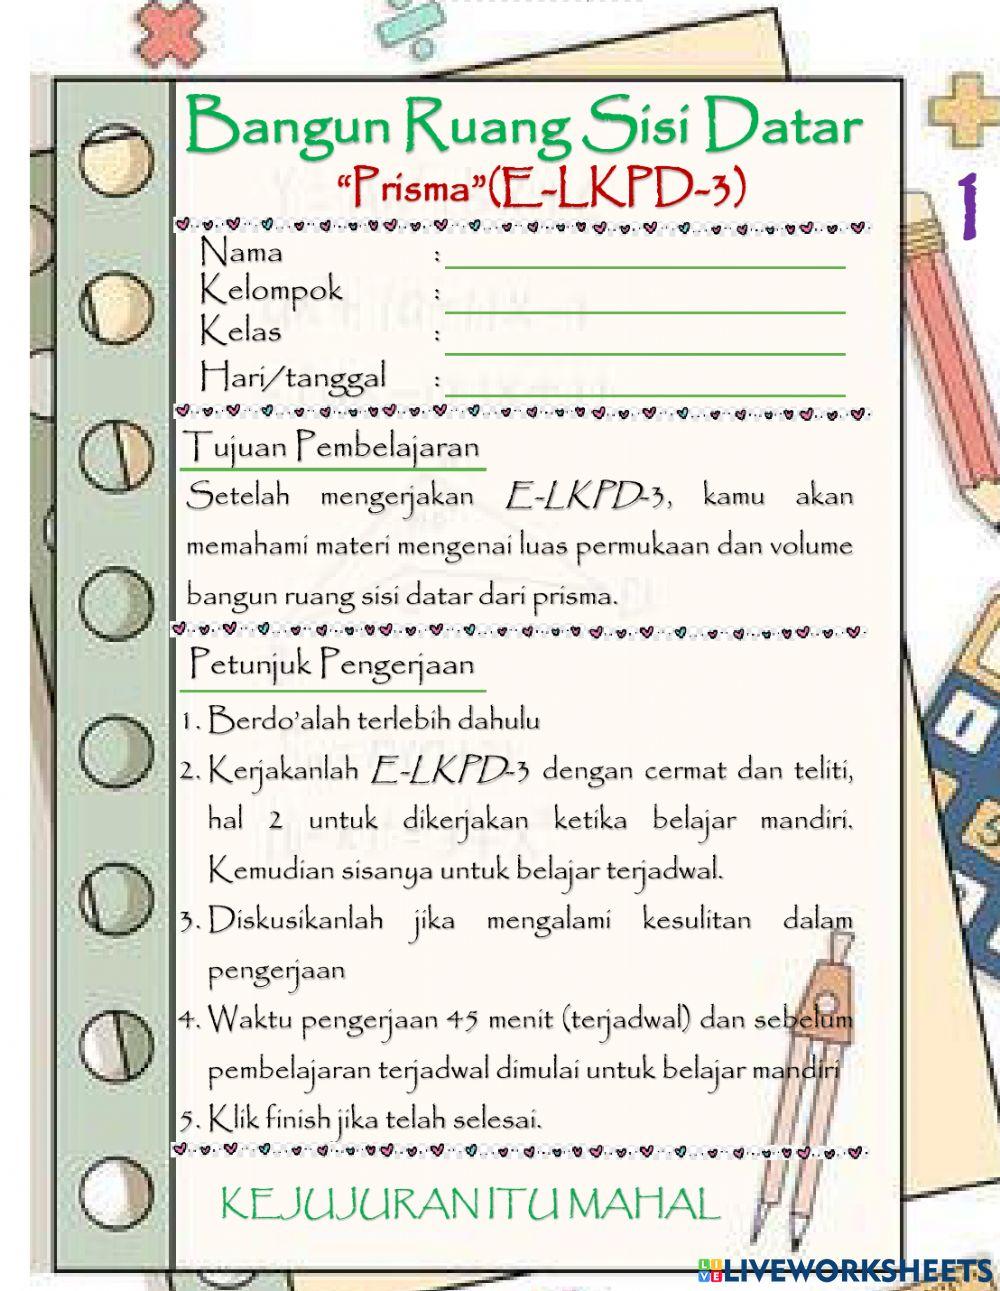 Bangun Ruang Sisi Datar
“Prisma”(E-LKPD-3)
1
Nama :
Kelompok :
Kelas :
Hari/tanggal :
Tujuan Pembelajaran
Setelah mengerjakan E-LKPD-3, kamu akan
memahami materi mengenai luas permukaan dan volume
bangun ruang sisi datar dari prisma.
Petunjuk Pengerjaan
1. Berdo’alah terlebih dahulu
2. Kerjakanlah E-LKPD-3 dengan cermat dan teliti,
hal 2 untuk dikerjakan ketika belajar mandiri.
Kemudian sisanya untuk belajar terjadwal.
3. Diskusikanlah jika mengalami kesulitan dalam
pengerjaan
4. Waktu pengerjaan 45 menit (terjadwal) dan sebelum
pembelajaran terjadwal dimulai untuk belajar mandiri
5. Klik finish jika telah selesai.
KEJUJURAN ITU MAHAL
LIVE LIVEWORKSHEETS